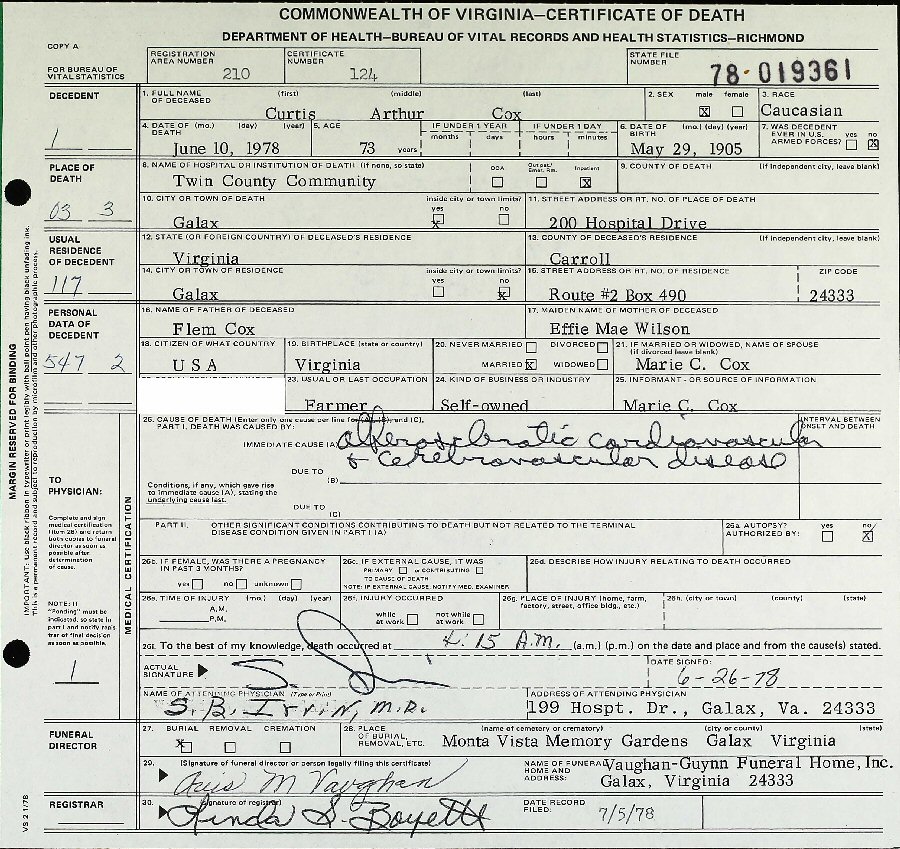 COMMONWEALTH OF VIRGINIA—CERTIFICATE OF DEATH
DEPARTMENT OF HEALTH—BUREAU OF VITAL RECORDS AND HEALTH STATISTICS—RICHMOND
COPY A
FOR BUREAU OF VITAL STATISTICS
REGISTRATION AREA NUMBER 210
CERTIFICATE NUMBER 124
STATE FILE NUMBER 78-019361
DECEDENT
1
1. FULL NAME OF DECEASED (first) (middle) (last)
Curtis Arthur Cox
2. SEX male ☒ female ☐
3. RACE Caucasian
4. DATE OF DEATH (mo.) (day) (year) June 10, 1978
5. AGE 73 years
IF UNDER 1 YEAR months days
IF UNDER 1 DAY hours minutes
6. DATE OF BIRTH (mo.) (day) (year) May 29, 1905
7. WAS DECEDENT EVER IN U.S. ARMED FORCES? yes ☐ no ☒
PLACE OF DEATH
03 3
8. NAME OF HOSPITAL OR INSTITUTION OF DEATH (If none, so state)
Twin County Community
DOA ☐ Outpat/ Emer. Rm. ☐ Inpatient ☒
9. COUNTY OF DEATH (If independent city, leave blank)
10. CITY OR TOWN OF DEATH inside city or town limits? yes ☒ no ☐
Galax
11. STREET ADDRESS OR RT. NO. OF PLACE OF DEATH
200 Hospital Drive
USUAL RESIDENCE OF DECEDENT
117
12. STATE (OR FOREIGN COUNTRY) OF DECEASED'S RESIDENCE
Virginia
13. COUNTY OF DECEASED'S RESIDENCE (If independent city, leave blank)
Carroll
14. CITY OR TOWN OF RESIDENCE inside city or town limits? yes ☐ no ☒
Galax
15. STREET ADDRESS OR RT. NO. OF RESIDENCE ZIP CODE
Route #2 Box 490 24333
PERSONAL DATA OF DECEDENT
547 2
16. NAME OF FATHER OF DECEASED
Flem Cox
17. MAIDEN NAME OF MOTHER OF DECEASED
Effie Mae Wilson
18. CITIZEN OF WHAT COUNTRY
U S A
19. BIRTHPLACE (state or country)
Virginia
20. NEVER MARRIED ☐ DIVORCED ☐
MARRIED ☒ WIDOWED ☐
21. IF MARRIED OR WIDOWED, NAME OF SPOUSE (if divorced leave blank)
Marie C. Cox
23. USUAL OR LAST OCCUPATION
Farmer
24. KIND OF BUSINESS OR INDUSTRY
Self-owned
25. INFORMANT - OR SOURCE OF INFORMATION
Marie C. Cox
MARGIN RESERVED FOR BINDING
IMPORTANT: Use black ribbon in typewriter or print legibly with ball point pen having black unfading ink.
This is a permanent record and subject to reproduction by microfilm and other photographic process.
TO PHYSICIAN:
Complete and sign medical certification (Item 26) and return both copies to funeral director as soon as possible after determination of cause.
NOTE: If "Pending" must be indicated, so state in part I and notify registrar of final decision as soon as possible.
1
MEDICAL CERTIFICATION
26. CAUSE OF DEATH (Enter only one cause per line for (A), (B), and (C).
PART I. DEATH WAS CAUSED BY:
INTERVAL BETWEEN ONSET AND DEATH
IMMEDIATE CAUSE (A) cardiovascular
& cerebrovascular disease
DUE TO (B)
Conditions, if any, which gave rise to immediate cause (A), stating the underlying cause last.
DUE TO (C)
PART II. OTHER SIGNIFICANT CONDITIONS CONTRIBUTING TO DEATH BUT NOT RELATED TO THE TERMINAL DISEASE CONDITION GIVEN IN PART I (A)
26a. AUTOPSY? AUTHORIZED BY: yes ☐ no ☒
26b. IF FEMALE, WAS THERE A PREGNANCY IN PAST 3 MONTHS?
yes ☐ no ☐ unknown ☐
26c. IF EXTERNAL CAUSE, IT WAS
PRIMARY ☐ or CONTRIBUTING ☐
TO CAUSE OF DEATH
NOTE: IF EXTERNAL CAUSE, NOTIFY MED. EXAMINER
26d. DESCRIBE HOW INJURY RELATING TO DEATH OCCURRED
26e. TIME OF INJURY (mo.) (day) (year)
A.M.
P.M.
26f. INJURY OCCURRED
while at work ☐ not while at work ☐
26g. PLACE OF INJURY (home, farm, factory, street, office bldg., etc.)
26h. (city or town) (county) (state)
26i. To the best of my knowledge, death occurred at 4:15 A.M. (a.m.) (p.m.) on the date and place and from the cause(s) stated.
ACTUAL SIGNATURE
DATE SIGNED: 6-26-78
NAME OF ATTENDING PHYSICIAN (Type or Print)
S. B. Irvin, M.D.
ADDRESS OF ATTENDING PHYSICIAN
199 Hospt. Dr., Galax, Va. 24333
FUNERAL DIRECTOR
27. BURIAL ☒ REMOVAL ☐ CREMATION ☐
28. PLACE OF BURIAL, REMOVAL, ETC. (name of cemetery or crematory) (city or county) (state)
Monta Vista Memory Gardens Galax Virginia
29. (Signature of funeral director or person legally filing this certificate)
M Vaughan
NAME OF FUNERAL HOME AND ADDRESS: Vaughan-Guynn Funeral Home, Inc.
Galax, Virginia 24333
REGISTRAR
30. (Signature of registrar)
Linda S. Boyett
DATE RECORD FILED: 7/5/78
VS 2 1/78